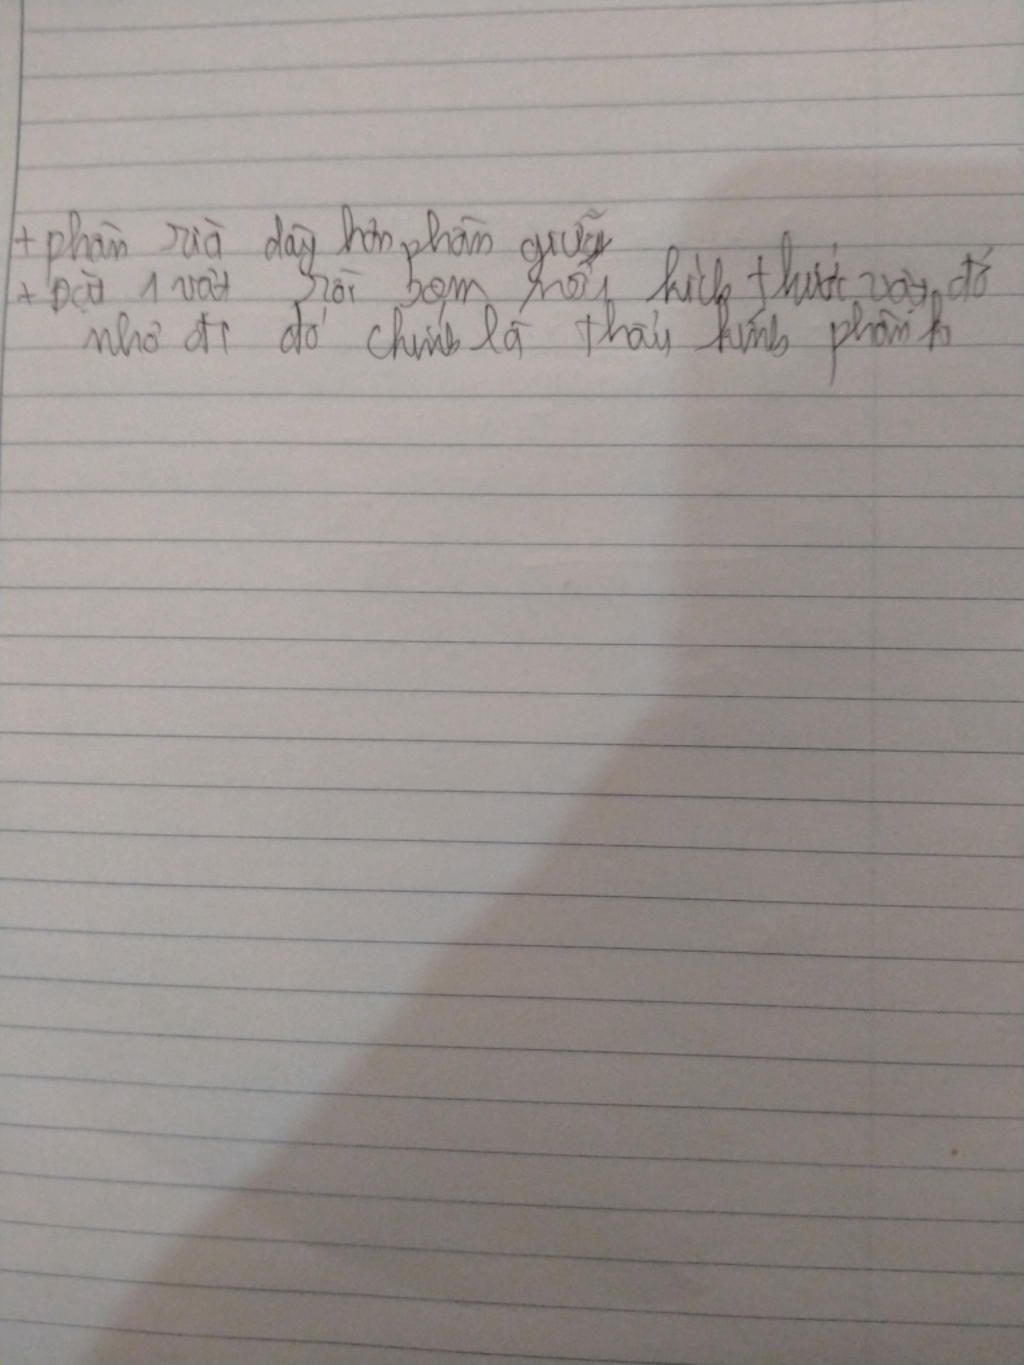 + phần rìa dày hơn phần giữa
+ Đặt 1 vật rồi kích thước vật đó
nhỏ đi đó chính là thấu kính phân k